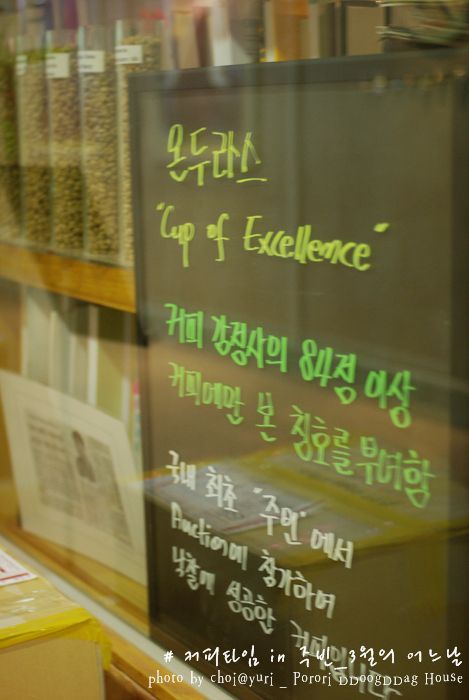 온두라스
"Cup of Excellence"
커피 감정사의 84점 이상
커피에만 본 칭호를 부여함
국내 최초 "주빈"에서
Auction에 참가하여
낙찰에 성공한 커피입니다
# 커피타임 in 주빈_3월의 어느날
photo by choj@yuri _ Porori DDoogDDag House